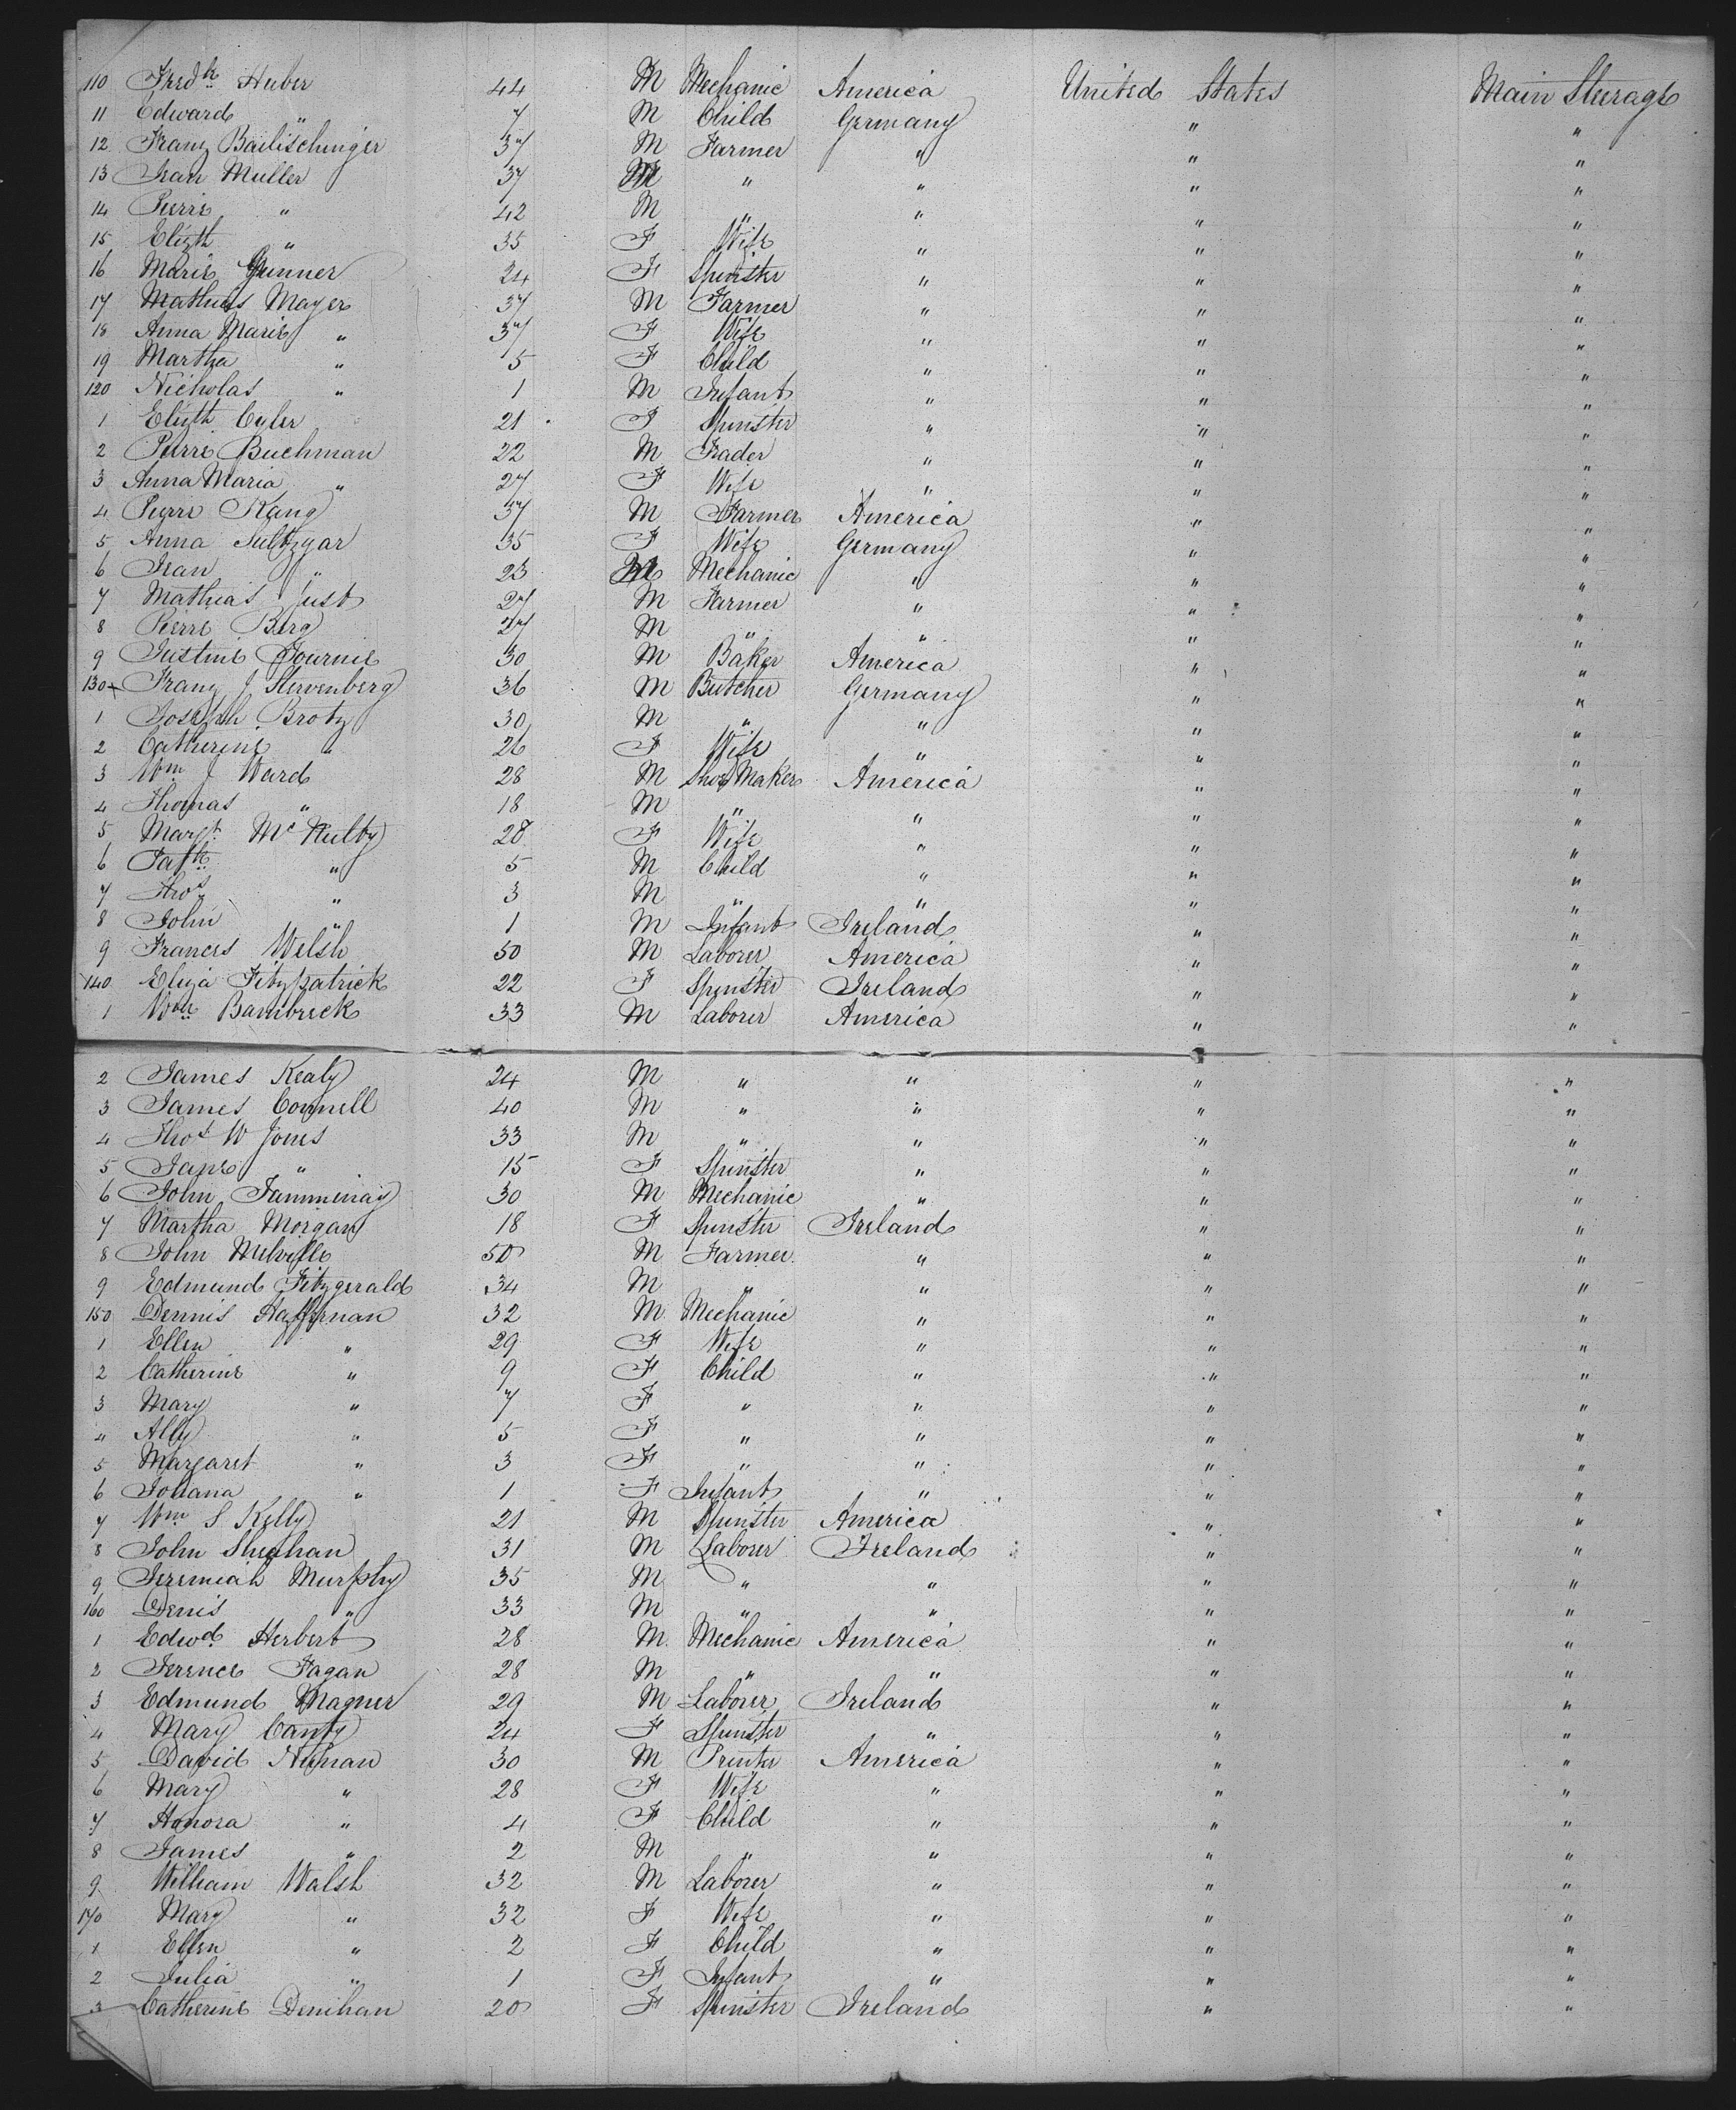 110 Fredk Huber 44 M Mechanic America United States Main Steerage
11 Edward " 7 M Child Germany " "
12 Franz Bailischinger 37 M Farmer " " "
13 Jean Muller 37 M " " " "
14 Pierre " 42 M " " " "
15 Elizth " 35 F Wife " " "
16 Marie Gunner 24 F Spinster " " "
17 Mathias Mayer 37 M Farmer " " "
18 Anna Marie " 37 F Wife " " "
19 Martha " 5 F Child " " "
120 Nicholas " 1 M Infant " " "
1 Elizth Cyler 21 F Spinster " " "
2 Pierre Buchman 22 M Trader " " "
3 Anna Maria " 27 F Wife " " "
4 Pierre Kang 37 M Farmer America " "
5 Anna Sultzgar 35 F Wife Germany " "
6 Jean " 23 M Mechanic " " "
7 Mathias Just 27 M Farmer " " "
8 Pierre Berg 27 M " " " "
9 Justine Fournie 30 M Baker America " "
130 Franz J Stervenberg 36 M Butcher Germany " "
1 Joseph Brotz 30 M " " " "
2 Catherine " 26 F Wife " " "
3 Wm J Ward 28 M Shoe Maker America " "
4 Thomas " 18 M " " " "
5 Margt McNulty 28 F Wife " " "
6 Patk " 5 M Child " " "
7 Thos " 3 M " " " "
8 John " 1 M Infant Ireland " "
9 Frances Welsh 50 M Laborer America " "
140 Eliza Fitzpatrick 22 F Spinster Ireland " "
1 Wm Bambrick 33 M Laborer America " "
2 James Kealy 24 M " " " "
3 James Connell 40 M " " " "
4 Thos W Jones 33 M " " " "
5 Jane " 15 F Spinster " " "
6 John Tamminay 30 M Mechanic " " "
7 Martha Morgan 18 F Spinster Ireland " "
8 John Melville 50 M Farmer " " "
9 Edmund Fitzgerald 34 M " " " "
150 Dennis Haffernan 32 M Mechanic " " "
1 Ellen " 29 F Wife " " "
2 Catherine " 9 F Child " " "
3 Mary " 7 F " " " "
4 Ally " 5 F " " " "
5 Margaret " 3 F " " " "
6 Johana " 1 F Infant " " "
7 Wm S Kelly 21 M Spinster America " "
8 John Sheehan 31 M Laborer Ireland " "
9 Jeremiah Murphy 35 M " " " "
160 Denis " 33 M " " " "
1 Edwd Herbert 28 M Mechanic America " "
2 Terence Fagan 28 M " " " "
3 Edmund Magner 29 M Laborer Ireland " "
4 Mary Canty 24 F Spinster " " "
5 David Nunan 30 M Printer America " "
6 Mary " 28 F Wife " " "
7 Honora " 4 F Child " " "
8 James " 2 M " " " "
9 William Walsh 32 M Laborer " " "
170 Mary " 32 F Wife " " "
1 Ellen " 2 F Child " " "
2 Julia " 1 F Infant " " "
3 Catherine Denihan 20 F Spinster Ireland " "